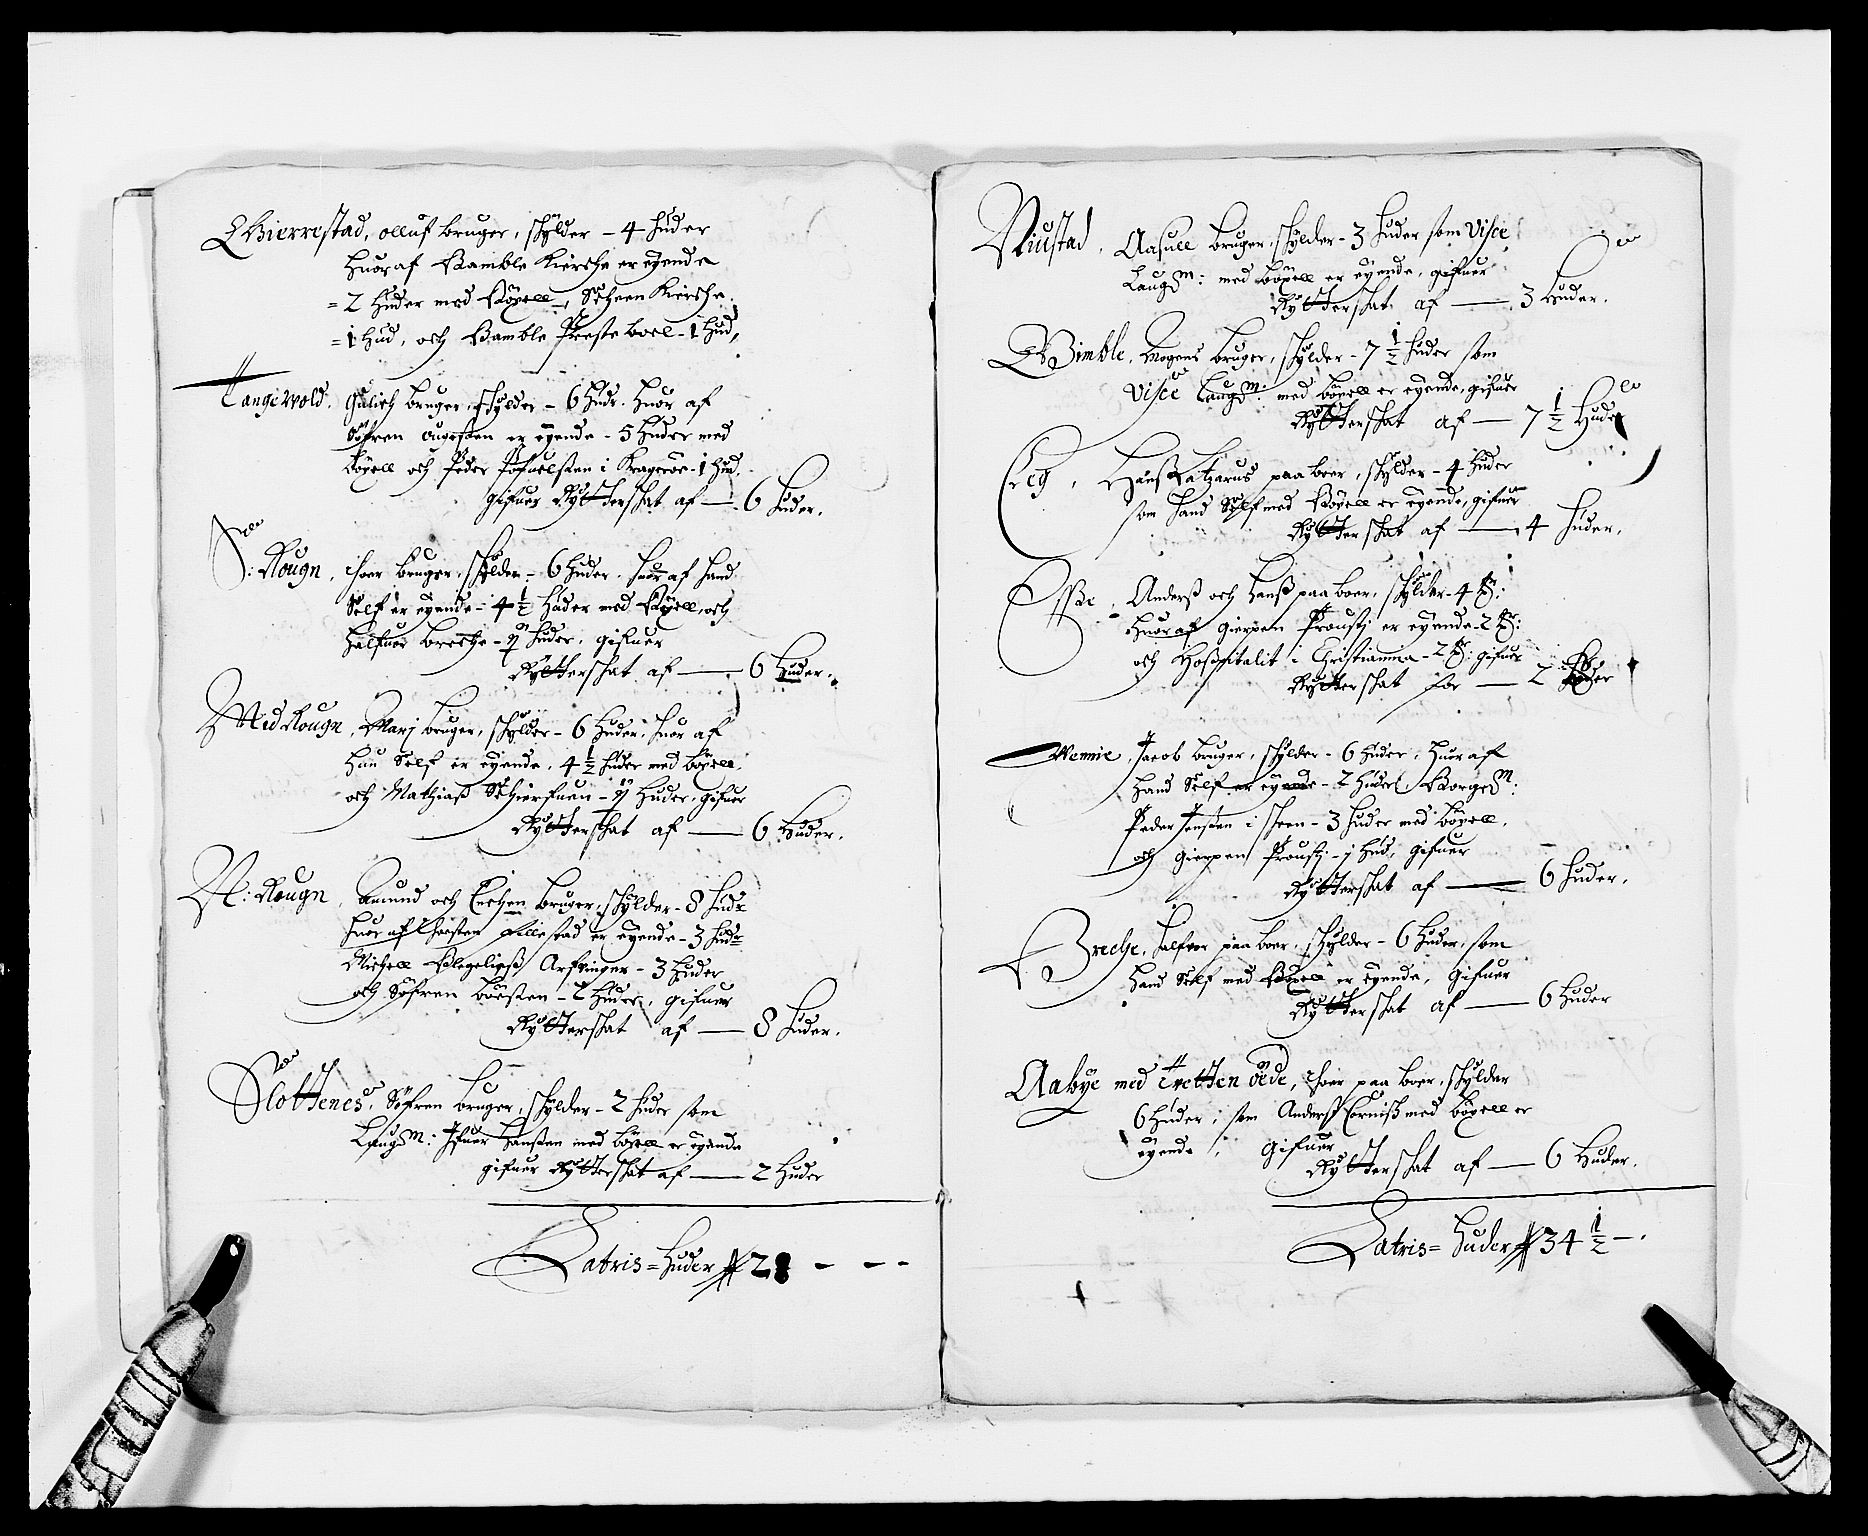 Bierrestad, olluf bruger, schylder – 4 huder
huoraf Bamble Kiersche er eyende
= 2 huder med Böxell, Scheen Kiersche
= 1 hud, och Bamble Preste boel – 1 hud,
Tangivold. bruger, schylder – 6 hudr. huor af
Söfren er eyende – 5 huder med
böxell och Peder Pofuelsen i Krageröe – 1 hud,
gifuer Rytterschat af — 6 huder.
S: Rougn, bruger, schylder – 6 huder. huoraf hand
Self er eyende – 4 1/2 huder med Böxell, och
Halfuor Breche – huder, gifuer
Rytterschat af — 6 Huder.
Med Rougn, bruger, schylder – 6 huder, huor af
Self er eyende, 4 1/2 huder med böxell,
och Mathiaß – huder, gifuer
Rytterschat af — 6 Huder.
N: Rougn, Amund och bruger, schylder – 8 hudr
huor af Fillestad er eyende – 3 hudr
Michell Arfvinger – 3 huder
och Söfren – 2 huder, gifuer
Rytterschat af — 8 huder.
Slottenes, Söfren bruger, schylder – 2 huder som
Laugm: Ifuer Hansen med böxell er eyende
gifuer Rytterschat af — 2 huder
Latris = huder 28 – – –
Niustad, Aasull bruger, schylder – 3 huder som Vise
Laugm: med böxell er eyende, gifuer
Rytterschat af — 3 huder.
Wimble, Mogens bruger, schylder – 7 1/2 huder som
Vise Laugm: med böxell er eyende, gifuer
Rytterschat af — 7 1/2 Huder
Eeg, Hanß paa boer, schylder – 4 huder
som hand Self med Böxell er eyende, gifuer
Rytterschat af — 4 huder.
Anderß och Hanß paa boer, schylder – 4
Huoraf Gierpen Proustj er eyende – 2
och Hospitalit i Christianna – 2 gifuer
Rytterschat for — 2
Jacob bruger, schylder – 6 huder, huoraf
Hand Self er eyende – 2 huder, Borgerm:
Peder Jensen i Scheen – 3 huder med böxell,
och Gierpen Proustj – 1 hud, gifuer
Rytterschat af — 6 huder.
Breche, Halfvor paa boer, schylder – 6 huder, som
Hand Self med Böxell er eyende, Gifuer
Rytterschat af — 6 huder
Aabye med Tvetten öede, paa boer, schylder
6 huder, som Anderß Corniß med böxell er
eyende, Gifuer
Rytterschat af — 6 Huder.
Latris = Huder 34 1/2 –